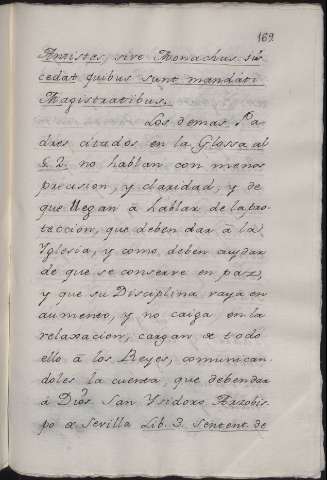 169
Antistas, sive Monachus sus
cedat quibus sunt mandati
Magistratibus.
Los demas Pa
dres citados en la Glossa al
§. 2. no hablan con menos
precision, y claridad, y de
que llegan à hablar de la pro
teccion, que deben dar à la
Yglesia, y como deben ayudar
de que se conserve en paz,
y que su Disciplina vaya en
aumento, y no caiga en la
relaxacion, cargan de todo
ello à los Reyes, comunican
doles la cuenta, que deben dar
à Dios. San Ysidoro Arzobis
po de Sevilla Lib. 3. Sentent. de